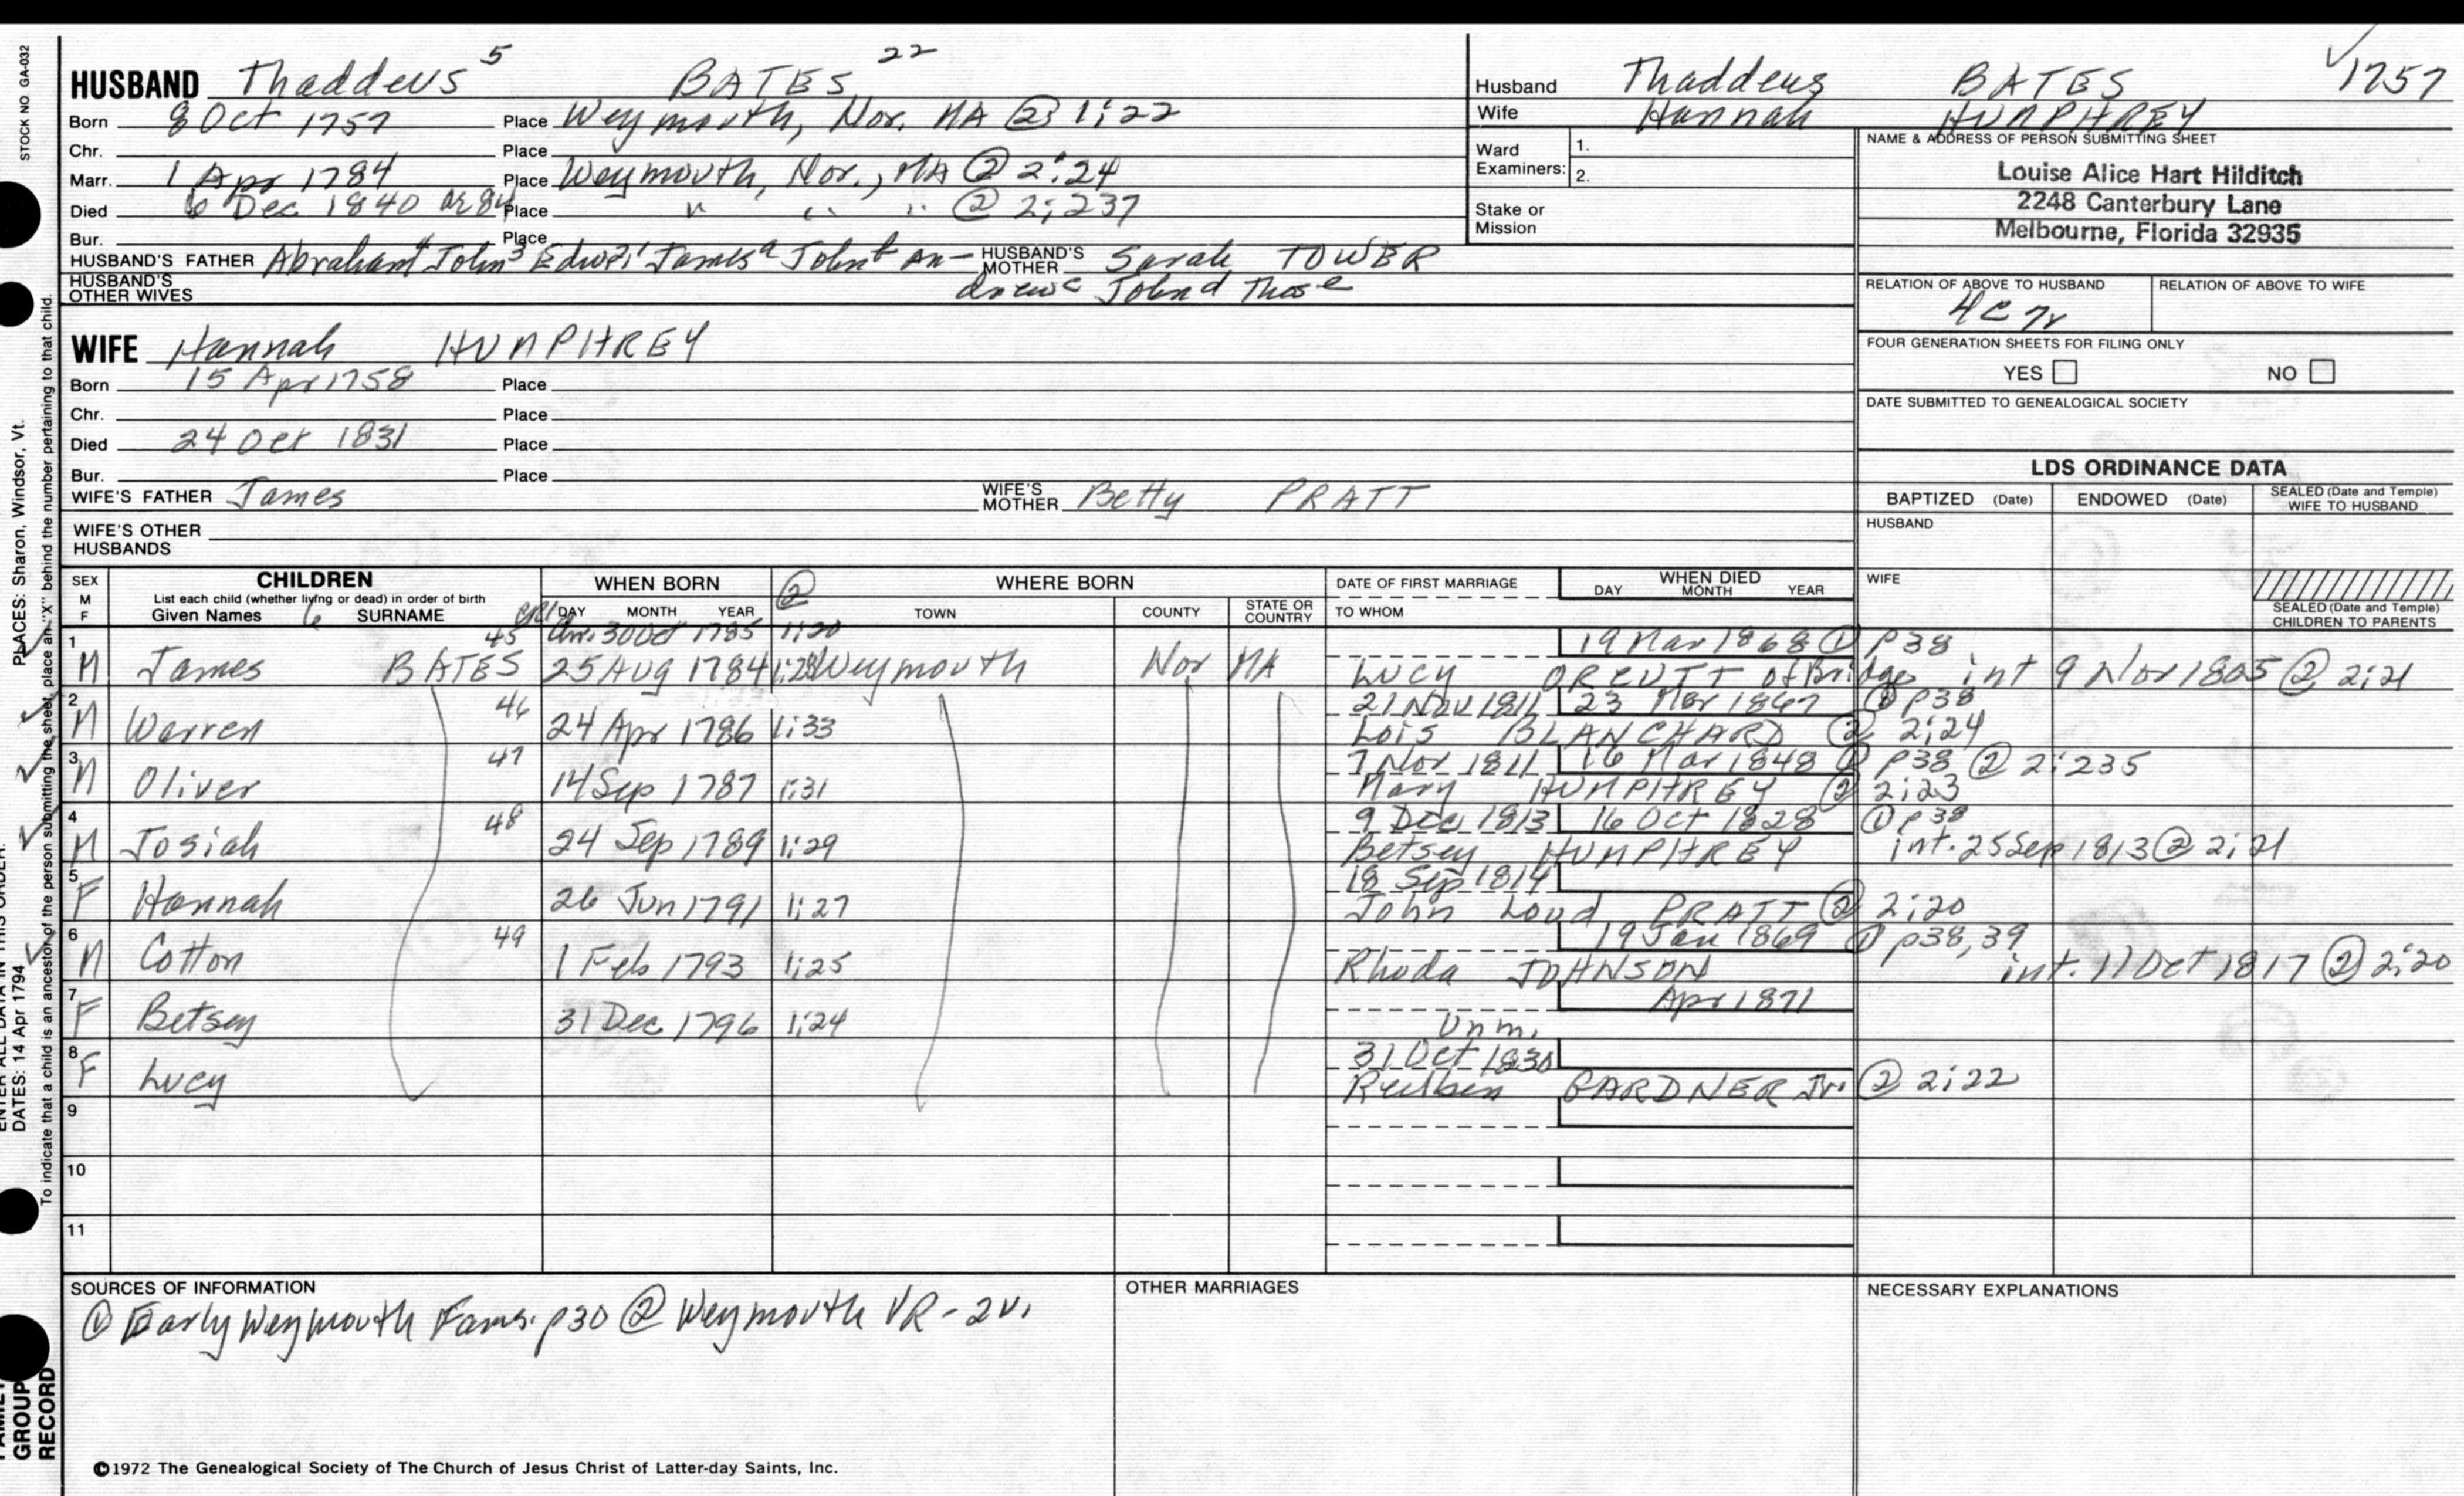 STOCK NO GA-032
HUSBAND Thaddeus 5 BATES 22
Born 8 Oct 1757 Place Weymouth, Nor. MA @ 1:22
Chr. Place
Marr. 1 Apr 1784 Place Weymouth, Nor., MA @ 2:24
Died 6 Dec 1840 or 84 Place " " " @ 2:237
Bur. Place
HUSBAND'S FATHER Abraham 4 John 3 Edw 1 James a John b An- HUSBAND'S MOTHER Sarah TOWER
drew c John d Thos e
HUSBAND'S OTHER WIVES
WIFE Hannah HUMPHREY
Born 15 Apr 1758 Place
Chr. Place
Died 24 Oct 1831 Place
Bur. Place
WIFE'S FATHER James WIFE'S MOTHER Betty PRATT
WIFE'S OTHER HUSBANDS
Husband Thaddeus BATES ✓1757
Wife Hannah HUMPHREY
Ward Examiners: 1. 2.
Stake or Mission
NAME & ADDRESS OF PERSON SUBMITTING SHEET
Louise Alice Hart Hilditch
2248 Canterbury Lane
Melbourne, Florida 32935
RELATION OF ABOVE TO HUSBAND RELATION OF ABOVE TO WIFE
4c 7r
FOUR GENERATION SHEETS FOR FILING ONLY
YES NO
DATE SUBMITTED TO GENEALOGICAL SOCIETY
LDS ORDINANCE DATA
BAPTIZED (Date) ENDOWED (Date) SEALED (Date and Temple) WIFE TO HUSBAND
HUSBAND
WIFE
SEALED (Date and Temple) CHILDREN TO PARENTS
SEX M F CHILDREN WHEN BORN ② WHERE BORN DATE OF FIRST MARRIAGE WHEN DIED
List each child (whether living or dead) in order of birth DAY MONTH YEAR
Given Names 6 SURNAME DAY MONTH YEAR TOWN COUNTY STATE OR COUNTRY TO WHOM
1 45 Chr. 30 Oct 1785 1:20 19 Mar 1868 ① p38
M James BATES 25 Aug 1784 1:28 Weymouth Nor MA Lucy ORCUTT of Bridge int 9 Nov 1805 @ 2:21
2 46 21 Nov 1811 23 Mar 1867 ① p38
M Warren 24 Apr 1786 1:33 Lois BLANCHARD ② 2:24
3 47 7 Nov 1811 16 Mar 1848 ① p38 ② 2:235
M Oliver 14 Sep 1787 1:31 Mary HUMPHREY ② 2:23
4 48 9 Dec 1813 16 Oct 1828 ① p38
M Josiah 24 Sep 1789 1:29 Betsey HUMPHREY int. 25 Sep 1813 ② 2:21
5 18 Sep 1814
F Hannah 26 Jun 1791 1:27 John Loud PRATT ② 2:20
6 49 19 Jan 1869 ① p38,39
M Cotton 1 Feb 1793 1:25 Rhoda JOHNSON int. 11 Oct 1817 ② 2:20
7 Apr 1871
F Betsey 31 Dec 1796 1:24 Unm.
8 31 Oct 1830
F Lucy Reuben GARDNER Jr. ② 2:22
9
10
11
SOURCES OF INFORMATION
① Early Weymouth Fams. p30 ② Weymouth VR - 2v.
OTHER MARRIAGES
NECESSARY EXPLANATIONS
©1972 The Genealogical Society of The Church of Jesus Christ of Latter-day Saints, Inc.
PLACES: Sharon, Windsor, Vt.
DATES: 14 Apr 1794
To indicate that a child is an ancestor of the person submitting the sheet, place an "X" behind the number pertaining to that child.
GROUP
RECORD